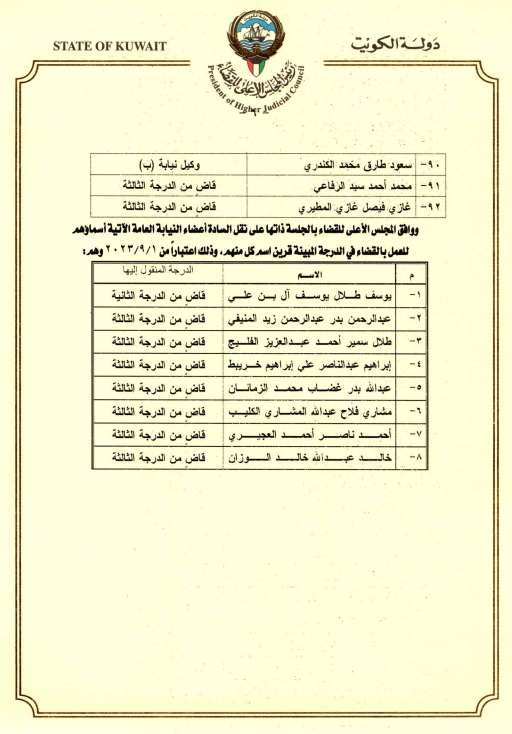 STATE OF KUWAIT
دولة الكويت
رئيس المجلس الأعلى للقضاء
President of Higher Judicial Council
٩٠- سعود طارق محمد الكندري وكيل نيابة (ب)
٩١- محمد أحمد سيد الرفاعي قاضٍ من الدرجة الثالثة
٩٢- غازي فيصل غازي المطيري قاضٍ من الدرجة الثالثة
ووافق المجلس الأعلى للقضاء بالجلسة ذاتها على نقل السادة أعضاء النيابة العامة الآتية أسماؤهم
للعمل بالقضاء في الدرجة المبينة قرين اسم كل منهم، وذلك اعتباراً من ٢٠٢٣/٩/١ وهم:
م الاسم الدرجة المنقول إليها
١- يوسف طلال يوسف آل بن علي قاضٍ من الدرجة الثانية
٢- عبدالرحمن بدر عبدالرحمن زيد المنيفي قاضٍ من الدرجة الثالثة
٣- طلال سمير أحمد عبدالعزيز الفليج قاضٍ من الدرجة الثالثة
٤- إبراهيم عبدالناصر علي إبراهيم خريبط قاضٍ من الدرجة الثالثة
٥- عبدالله بدر غضاب محمد الزمانان قاضٍ من الدرجة الثالثة
٦- مشاري فلاح عبدالله المشاري الكليب قاضٍ من الدرجة الثالثة
٧- أحمد ناصر أحمد العجيري قاضٍ من الدرجة الثالثة
٨- خالد عبدالله خالد الوزان قاضٍ من الدرجة الثالثة